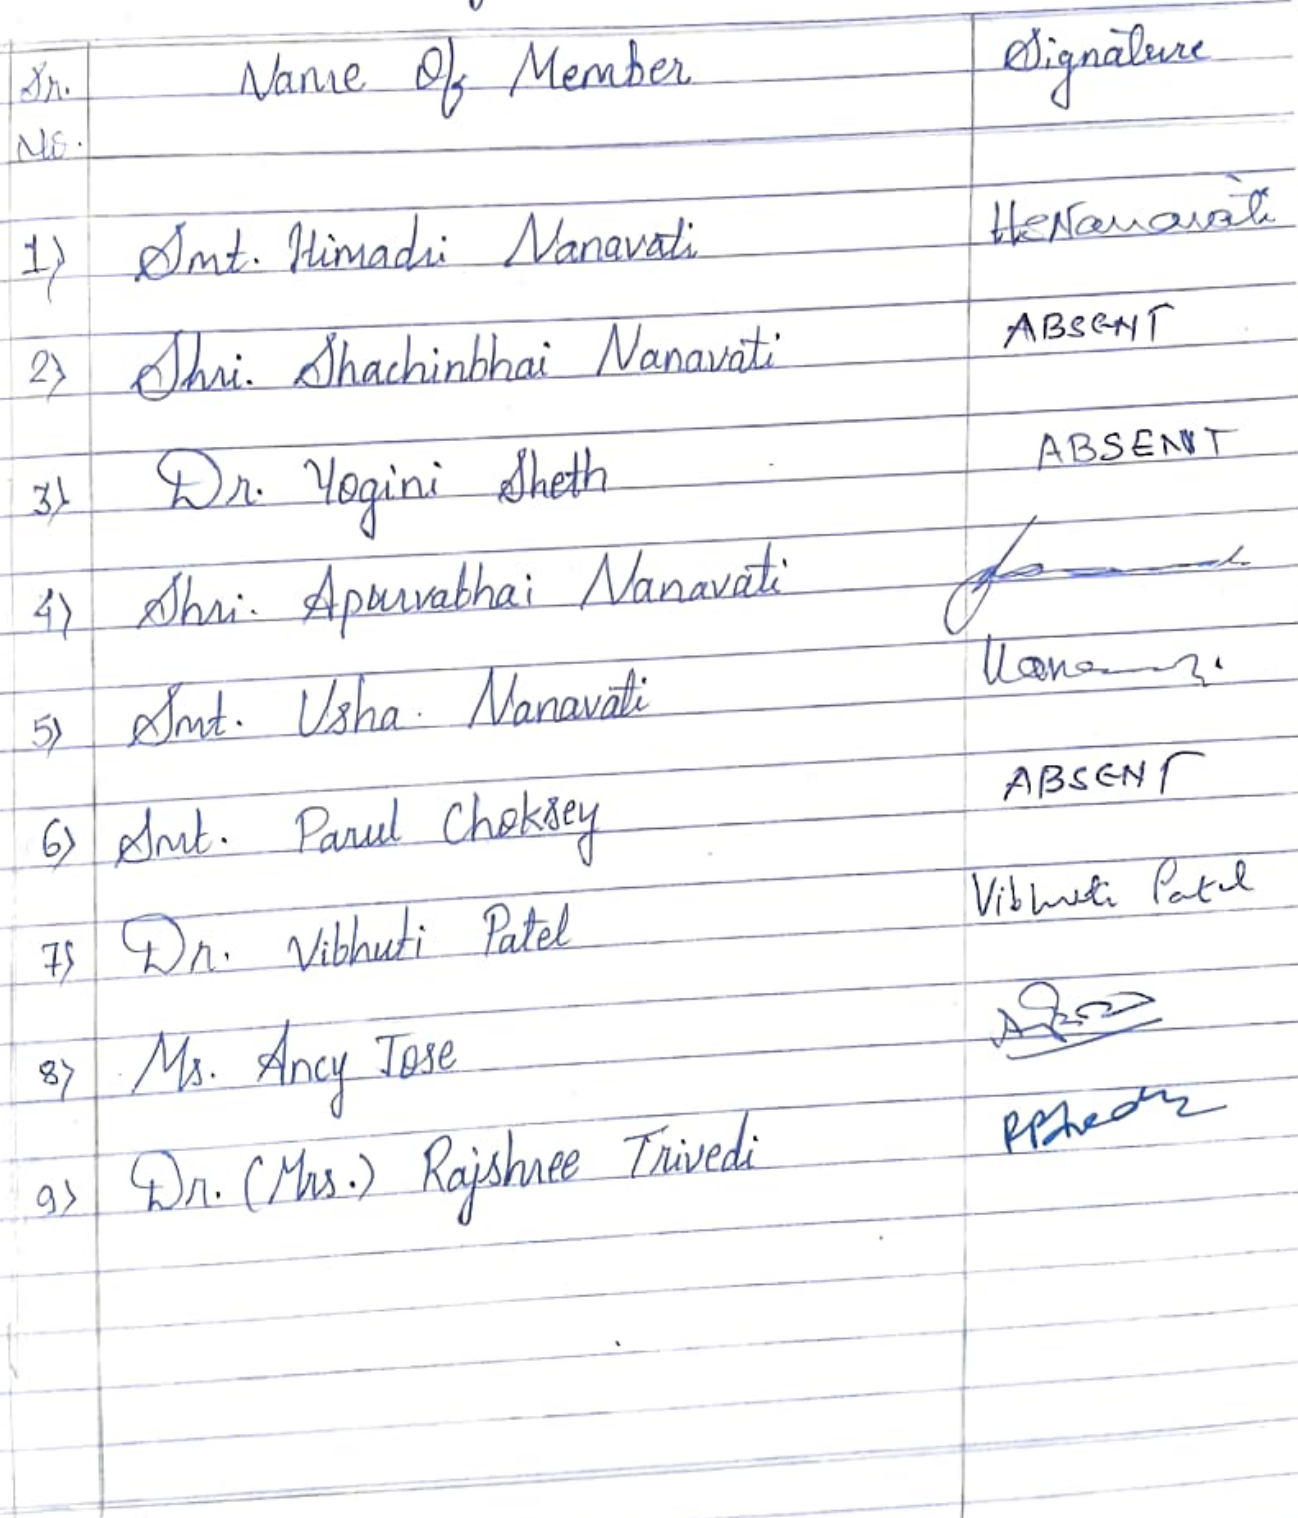 Sr. Name Of Member Signature
No.
1) Smt. Himadri Nanavati HeNanavati
2) Shri. Shachinbhai Nanavati ABSENT
3) Dr. Yogini Sheth ABSENT
4) Shri. Apurvabhai Nanavati
5) Smt. Usha. Nanavati
6) Smt. Parul Choksey ABSENT
7) Dr. Vibhuti Patel Vibhuti Patel
8) Ms. Ancy Jose
9) Dr. (Mrs.) Rajshree Trivedi